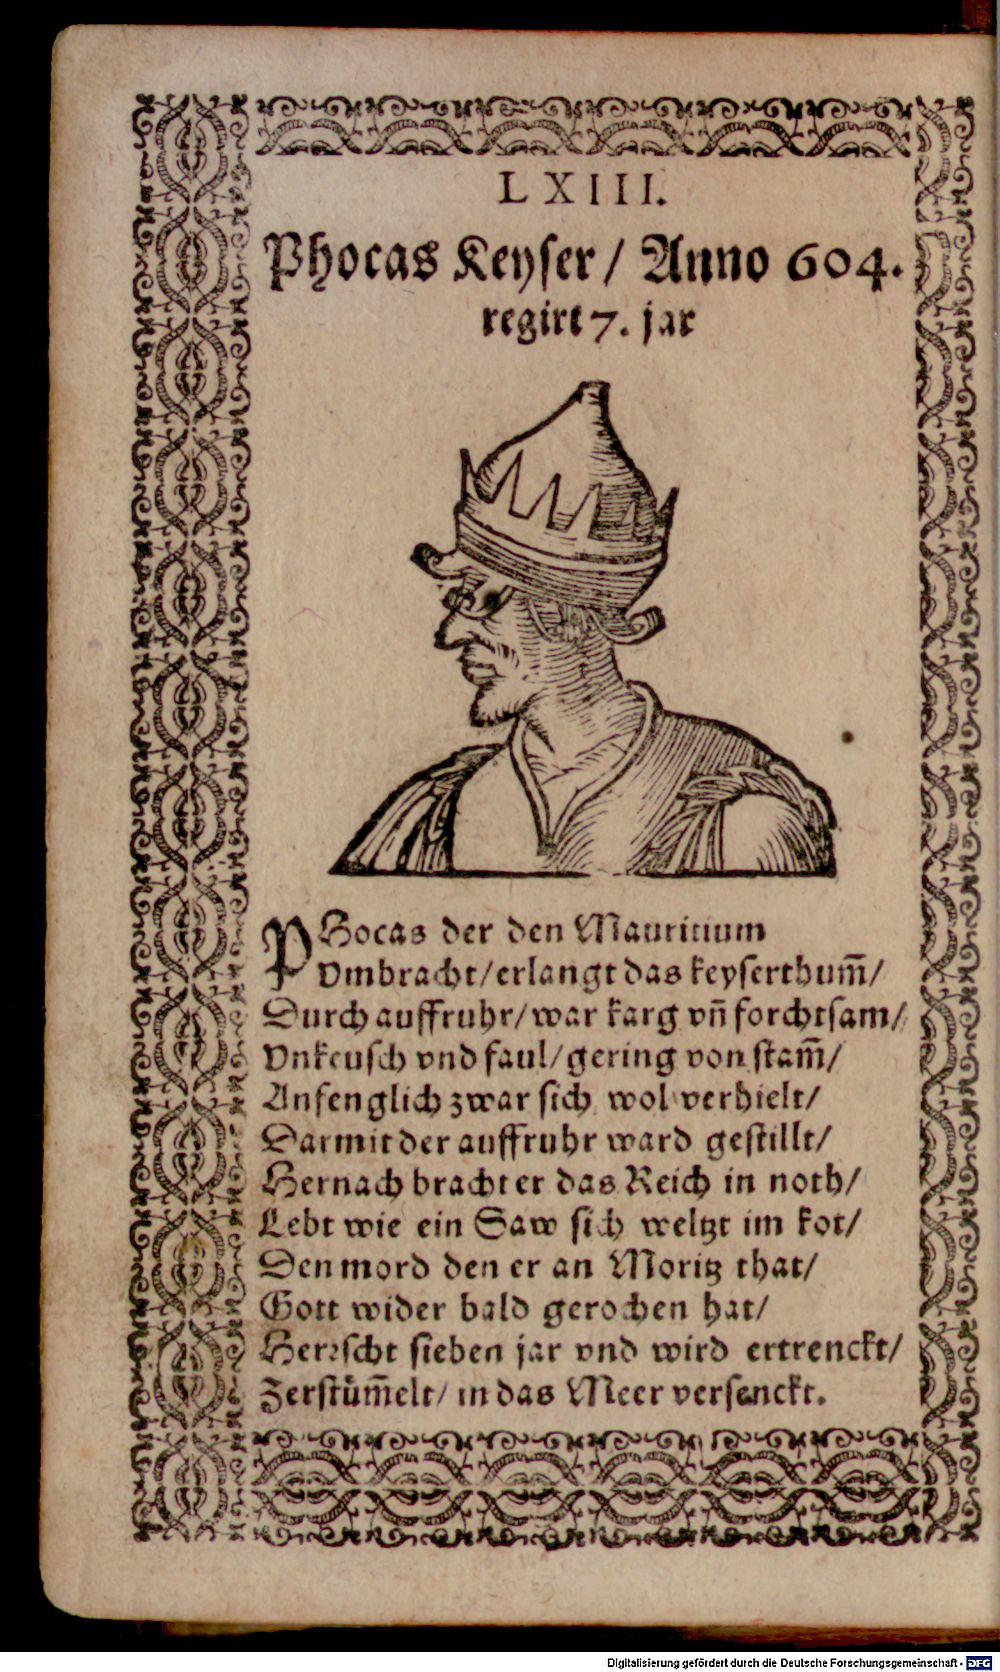 LXIII.
Phocas Keyser / Anno 604.
regirt 7. jar
PHocas der den Mauritium
Vmbracht / erlangt das keyserthum̃ /
Durch auffruhr / war karg vñ forchtsam /
Vnkeusch vnd faul / gering von stam̃ /
Anfenglich zwar sich wol verhielt /
Darmit der auffruhr ward gestillt /
Hernach bracht er das Reich in noth /
Lebt wie ein Saw sich weltzt im kot /
Den mord den er an Moritz that /
Gott wider bald gerochen hat /
Herrscht sieben jar vnd wird ertrenckt /
Zerstüm̃elt / in das Meer versenckt.
Digitalisierung gefördert durch die Deutsche Forschungsgemeinschaft - DFG